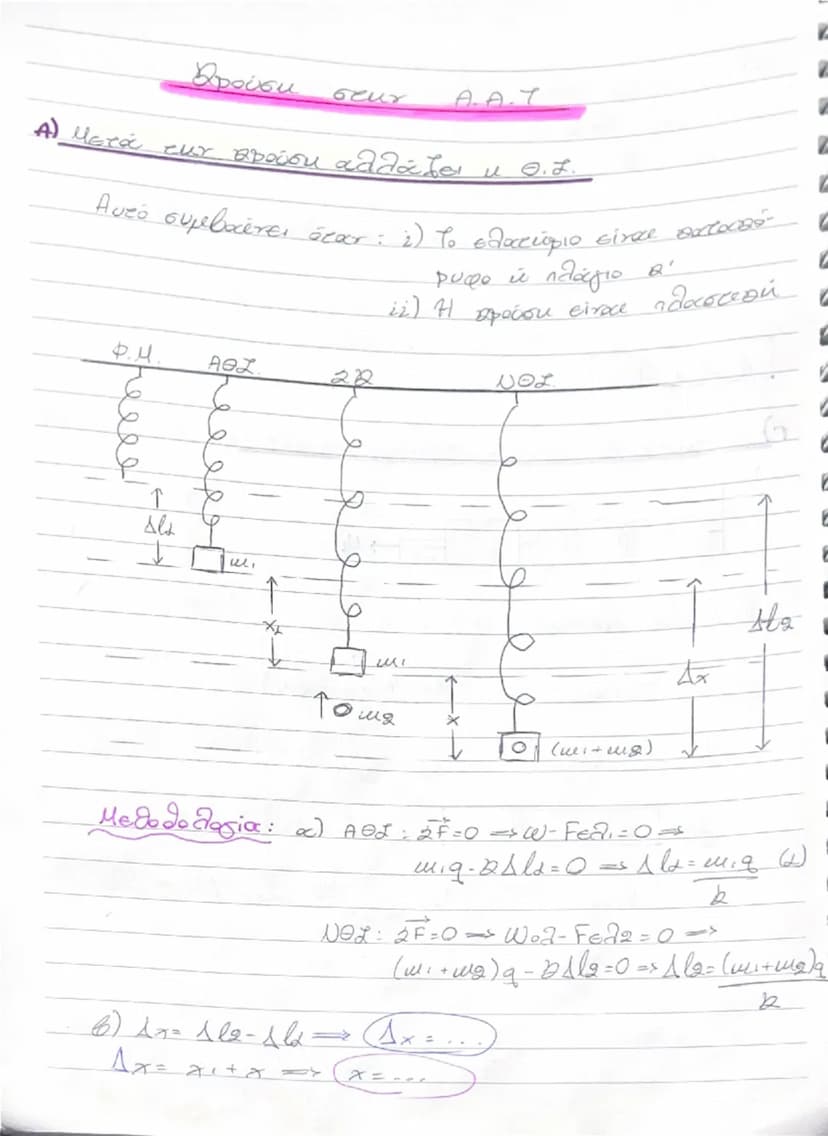 Κρούση στην Α.Α.Τ
Α) Μετά την κρούση αλλάζει η Θ.Ι.
Αυτό συμβαίνει όταν: i) Το ελατήριο είναι κατακό-
ρυφο ή πλάγιο κ'
ii) Η κρούση είναι πλαστική
Φ.Μ. ΑΘΙ. ΣΚ ΝΘΙ
Δl1
m1
x1
m1
Δl2
Δx
m2
x
(m1+m2)
Μεθοδολογία: α) ΑΘΙ: ΣF=0 ⇒ w-Fελ1=0 ⇒
m1g-kΔl1=0 ⇒ Δl1=m1g/k (1)
ΝΘΙ: ΣF=0 ⇒ Wολ-Fελ2=0 ⇒
(m1+m2)g-kΔl2=0 ⇒ Δl2=(m1+m2)g/k
β) Δx=Δl2-Δl1 ⇒ Δx=...
Δx=x1+x ⇒ x=...